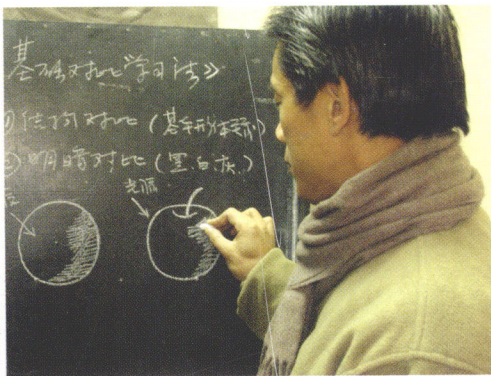 基础对比《学习法》
①结构对比(基本形体要素)
②明暗对比(黑.白.灰)
光源